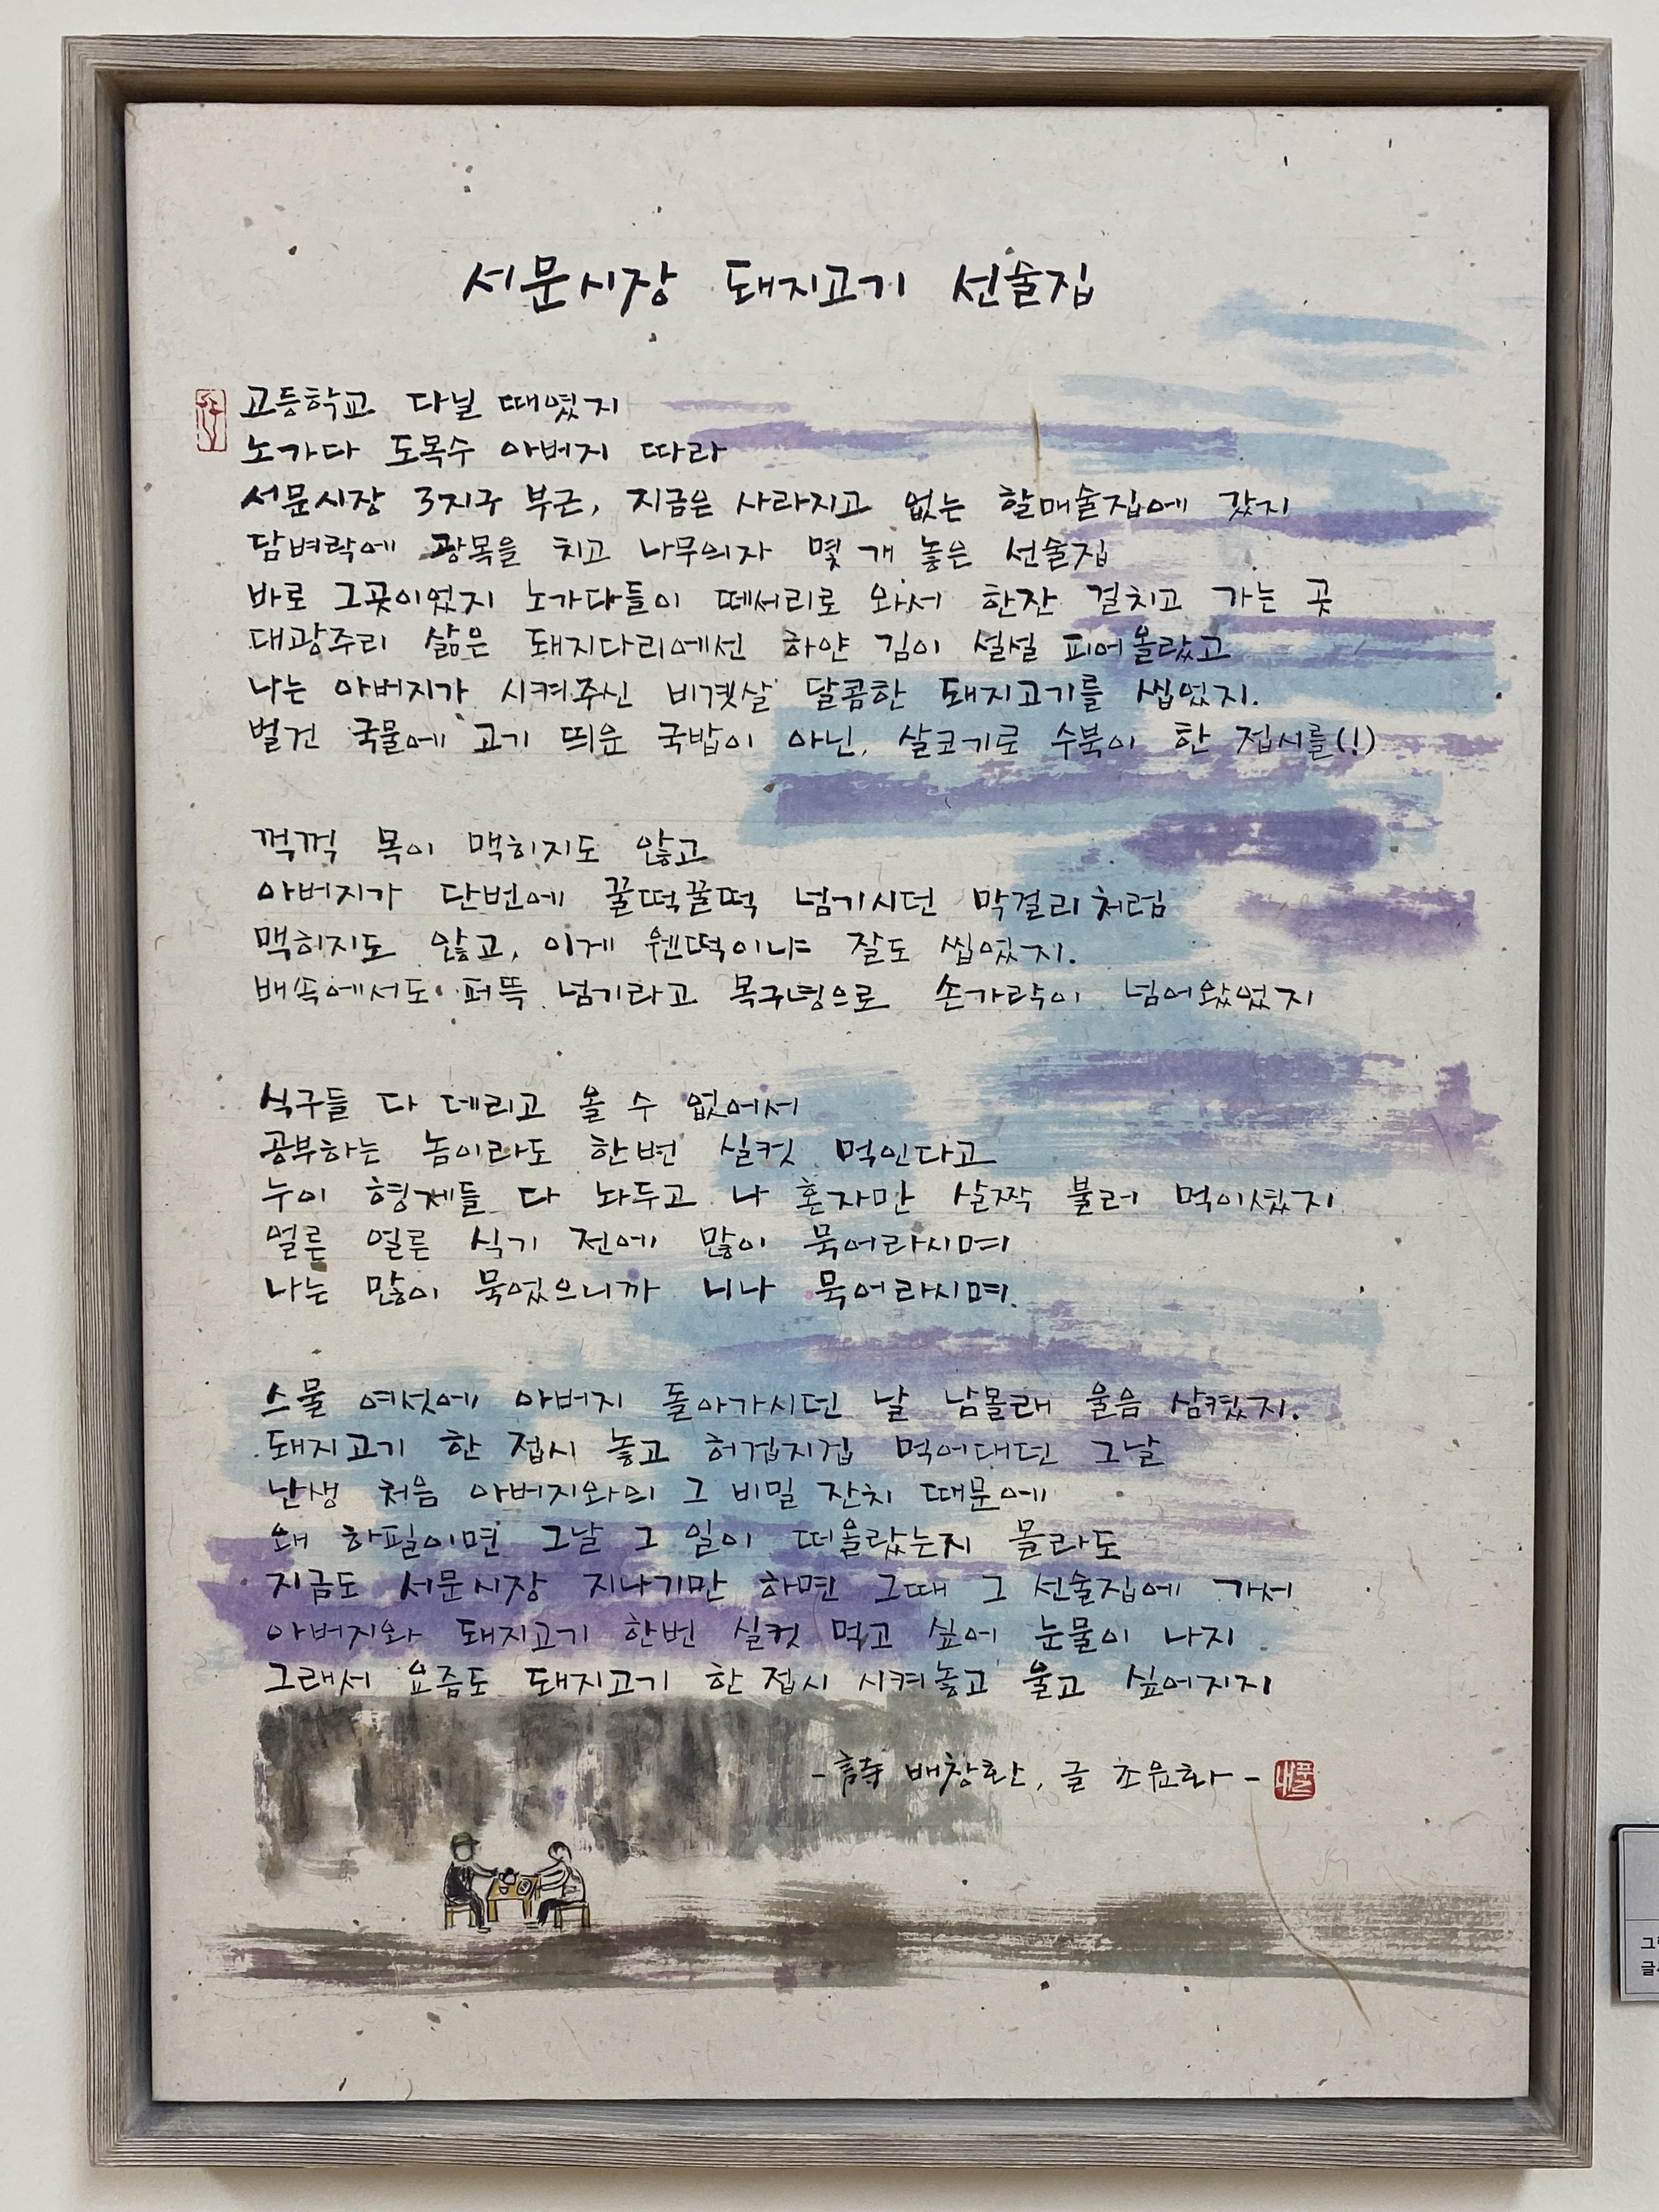 서문시장 돼지고기 선술집
고등학교 다닐 때였지
노가다 도목수 아버지 따라
서문시장 3지구 부근, 지금은 사라지고 없는 할매술집에 갔지
담벼락에 광목을 치고 나무의자 몇 개 놓은 선술집
바로 그곳이었지 노가다들이 떼서리로 와서 한잔 걸치고 가는 곳
대광주리 삶은 돼지다리에선 하얀 김이 설설 피어올랐고
나는 아버지가 시켜주신 비곗살 달콤한 돼지고기를 씹었지.
벌건 국물에 고기 띄운 국밥이 아닌, 살코기로 수북이 한 접시를(!)
꺽꺽 목이 맥히지도 않고
아버지가 단번에 꿀떡꿀떡 넘기시던 막걸리처럼
맥히지도 않고, 이게 웬떡이냐 잘도 씹었지.
배속에서도 퍼뜩 넘기라고 목구녕으로 손가락이 넘어왔었지
식구들 다 데리고 올 수 없어서
공부하는 놈이라도 한번 실컷 먹인다고
누이 형제들 다 놔두고 나 혼자만 살짝 불러 먹이셨지
얼른 얼른 식기 전에 많이 묵어라시며
나는 많이 묵었으니까 니나 묵어라시며.
스물 여섯에 아버지 돌아가시던 날 남몰래 울음 삼켰지.
돼지고기 한 접시 놓고 허겁지겁 먹어대던 그날
난생 처음 아버지와의 그 비밀 잔치 때문에
왜 하필이면 그날 그 일이 떠올랐는지 몰라도
지금도 서문시장 지나기만 하면 그때 그 선술집에 가서
아버지와 돼지고기 한번 실컷 먹고 싶어 눈물이 나지
그래서 요즘도 돼지고기 한 접시 시켜놓고 울고 싶어지지
- 詩 배창환, 글 조윤화 -